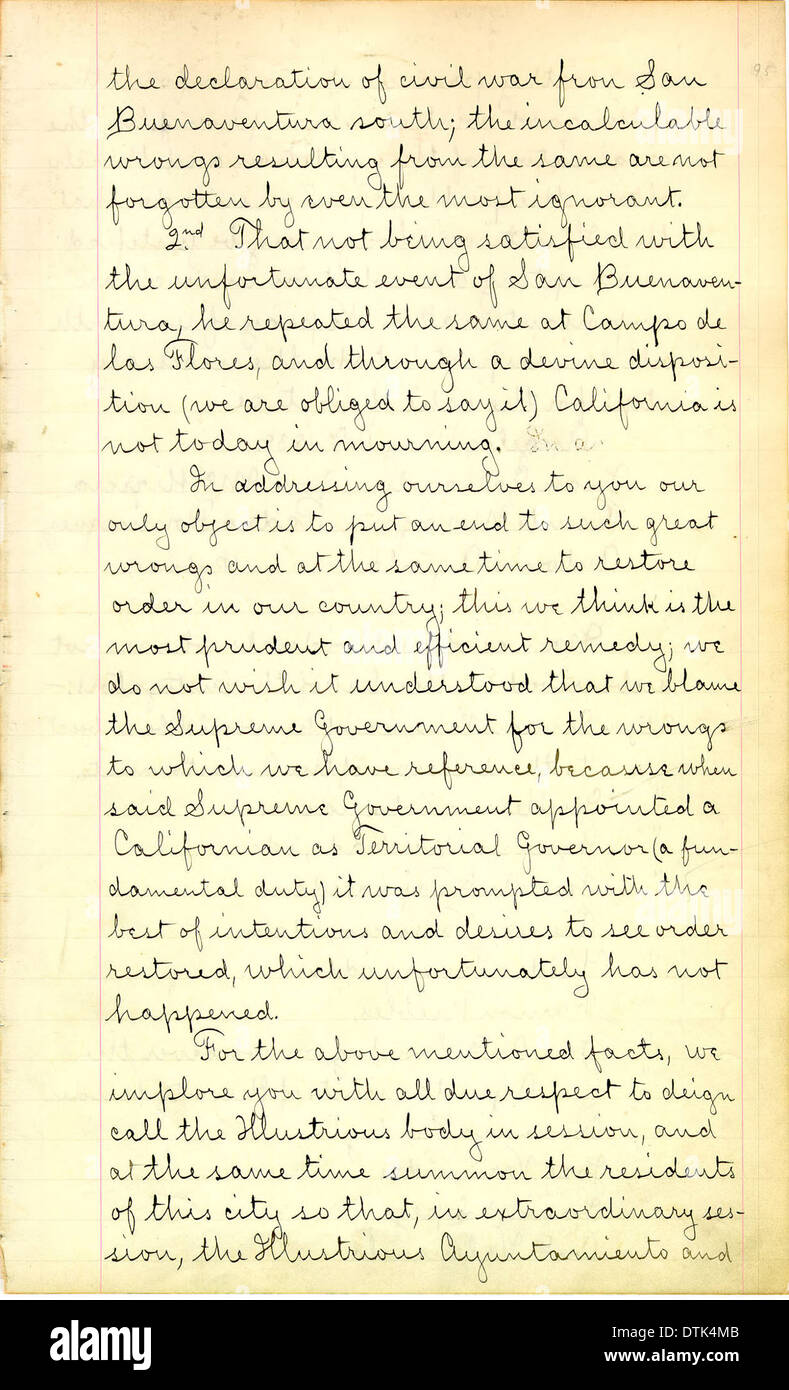 95
the declaration of civil war fron San
Buenaventura south; the incalculable
wrongs resulting from the same are not
forgotten by even the most ignorant.
2nd. That not being satisfied with
the unfortunate event of San Buenaven-
tura, he repeated the same at Campo de
las Flores, and through a devine disposi-
tion (we are obliged to say it) California is
not today in mourning. In a
In addressing ourselves to you our
only object is to put an end to such great
wrongs and at the same time to restore
order in our country; this we think is the
most prudent and efficient remedy; we
do not wish it understood that we blame
the Supreme Government for the wrongs
to which we have reference, because when
said Supreme Government appointed a
Californian as Territorial Governor (a fun-
damental duty) it was prompted with the
best of intentions and desires to see order
restored, which unfortunately has not
happened.
For the above mentioned facts, we
implore you with all due respect to deign
call the Illustrious body in session, and
at the same time summon the residents
of this city so that, in extraordinary ses-
sion, the Illustrious Ayuntamiento and
alamy
Image ID: DTK4MB
www.alamy.com